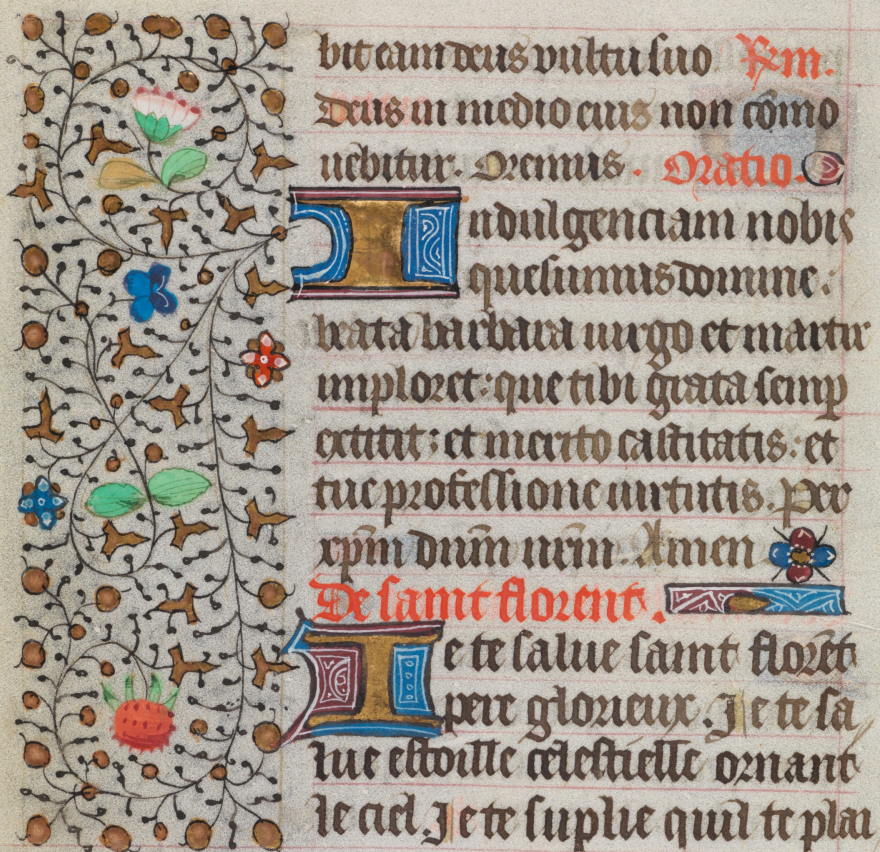 bit eam deus vultu suo Rm.
Deus in medio eius non cōmo
uebitur. Oremus. Oratio.
Indulgenciam nobis
quesumus domine:
beata barbara uirgo et martir
imploret: que tibi grata semp
extitit: et merito castitatis: et
tue professione uirtutis. Per
xpm̄ dnm̄ nrm̄. Amen
De saint florent.
Ie te salue saint florēt
pere glorieux. Je te sa
lue estoille celestielle ornant
le ciel. Je te suplie quil te plai